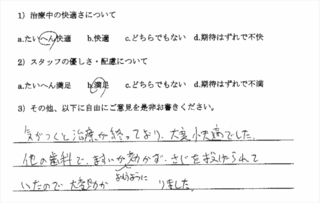 1）治療中の快適さについて
a.たいへん快適　b.快適　c.どちらでもない　d.期待はずれで不快
2）スタッフの優しさ・配慮について
a.たいへん満足　b.満足　c.どちらでもない　d.期待はずれで不満
3）その他、以下に自由にご意見を是非お書きください。
気がつくと治療が終っており、大変快適でした。
他の歯科で、ますいが効かず、さじを投げられて
いたので大変助か
りました。